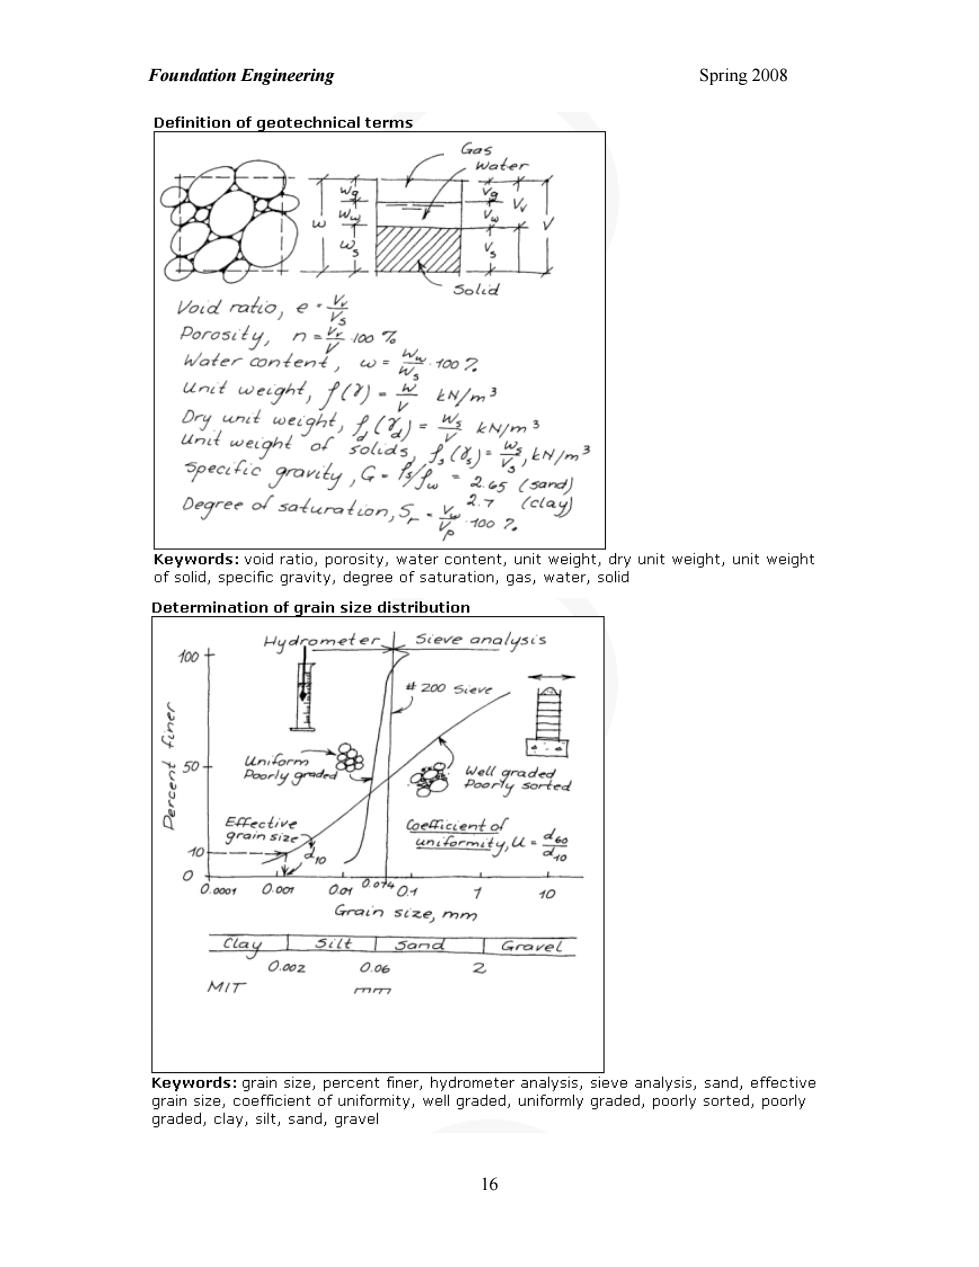 Foundation Engineering Spring 2008
Definition of geotechnical terms
Gas
Water
Wg Vg Vv
Ww Vw
W V
Ws Vs
Solid
Void ratio, e = Vv/Vs
Porosity, n = Vv/V · 100 %
Water content, ω = Ww/Ws · 100 %
Unit weight, ρ(γ) = W/V kN/m³
Dry unit weight, ρd(γd) = Ws/V kN/m³
Unit weight of solids, ρs(γs) = Ws/Vs, kN/m³
Specific gravity, G = ρs/ρw = 2.65 (sand)
2.7 (clay)
Degree of saturation, Sr = Vw/Vp · 100 %
Keywords: void ratio, porosity, water content, unit weight, dry unit weight, unit weight
of solid, specific gravity, degree of saturation, gas, water, solid
Determination of grain size distribution
Hydrometer Sieve analysis
100
# 200 Sieve
Percent finer
50
Uniform
Poorly graded
Well graded
Poorly sorted
Effective
grain size
Coefficient of
uniformity, U = d60/d10
10
d10
0
0.0001 0.001 0.01 0.074 0.1 1 10
Grain size, mm
Clay Silt Sand Gravel
0.002 0.06 2
MIT mm
Keywords: grain size, percent finer, hydrometer analysis, sieve analysis, sand, effective
grain size, coefficient of uniformity, well graded, uniformly graded, poorly sorted, poorly
graded, clay, silt, sand, gravel
16